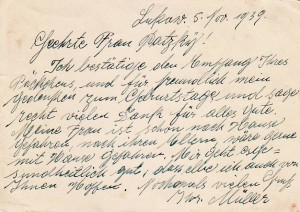 Lukow. 5. Nov. 1939.
Geehrte Frau
Ich bestätige den Empfang Ihres
Päckchens und für freundlich mein
Gedenken zum Geburtstage und sage
recht vielen Dank für alles Gute.
Meine Frau ist schon nach Hause
gefahren, nach ihren Eltern, wäre gerne
mit Hause gefahren. Mir geht es ge-
sundheitlich gut, dasselbe ich auch von
Ihnen hoffen. Nochmals vielen Gruß
Ihr. Müller